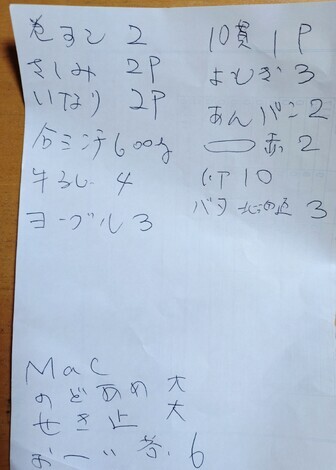 巻すし 2
さしみ 2P
いなり 2P
合ミンチ 600g
牛 4
ヨーグル 3
10貫 1P
よもぎ 3
あんパン 2
赤 2
10
バタ 北海道 3
MaC
のどあめ 大
せき止 大
おーい茶 6